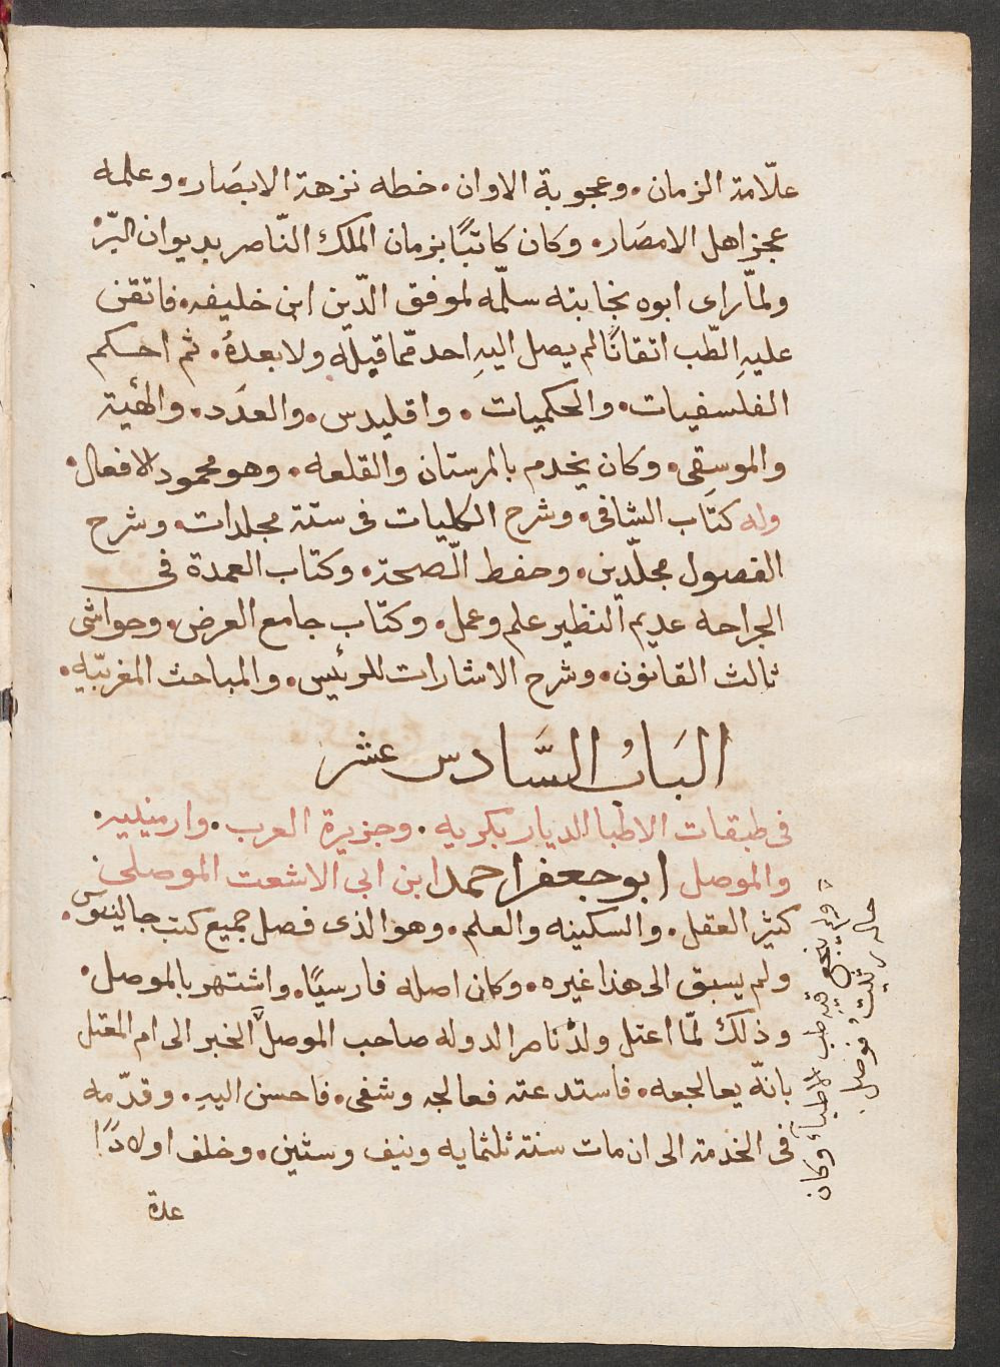 علّامة الزمان. وعجوبة الاوان. خطه نزهة الابصَار. وعلمه
عجز اهل الامصَار. وكان كاتبًا بزمان الملك النّاصر بديوان البرّ
ولمّا راى ابوه نجابته سلّمه لموفق الدّين ابن خليفه. فاتقن
عليهِ الطّب اتقانًا لم يصل اليهِ احد ممّا قبله ولا بعدهُ. ثم احكم
الفلسفيات. والحكميات. واقليدس. والعدَد. والهئية
والموسيقى. وكان يخدم بالمرستان والقلعه. وهو محمود الافعال.
وله كتَاب الشافى. وشرح الكليات فى ستة مجلدات. وشرح
الفصول مجلّدين. وحفط الصّحة. وكتاب العمدة فى
الجراحه عديم النظير علم وعمل. وكتاب جامع العرض. وحواشى
ثالث القانون. وشرح الاشارات للرئيس. والمباحث المغربيّه.
البَابُ السَّادس عشر
فى طبقات الاطبا الديار بكريه. وجزيرة العرب. وارمينيه.
والموصل ابو جعفر احمد ابن ابى الاشعت الموصلى
كثير العقل. والسكينه والعلم. وهو الذى فصل جميع كتب جالينوس.
ولم يسبق الى هذا غيره. وكان اصله فارسيًا. واشتهر بالموصل.
وذلك لمّا اعتل ولدُ ناصر الدوله صاحب الموصل الخبر الى ام المعتل
بانّه يعالجعه. فاستدعته فعالجه وشفى. فاحسن اليهِ. وقدّمه
فى الخذمة الى ان مات سنة ثلثمايه ونيف وستين. وخلف اولادًا
عدة
ولم ينجع فيهِ طب الاطبآء وكان
حاله رثيث فوصل.